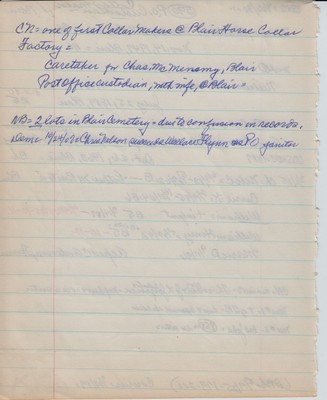 CN = one of first Collar Makers @ Blair Horse Collar
Factory =
Caretaker for Chas. McMenamy, Blair
Post Office custodian, with wife, @ Blair =
NB = 2 lots in Blair Cemetery = due to confusion in records,
10/24/07 = Chas Nelson succeeded Wallace Flynn as P.O. janitor